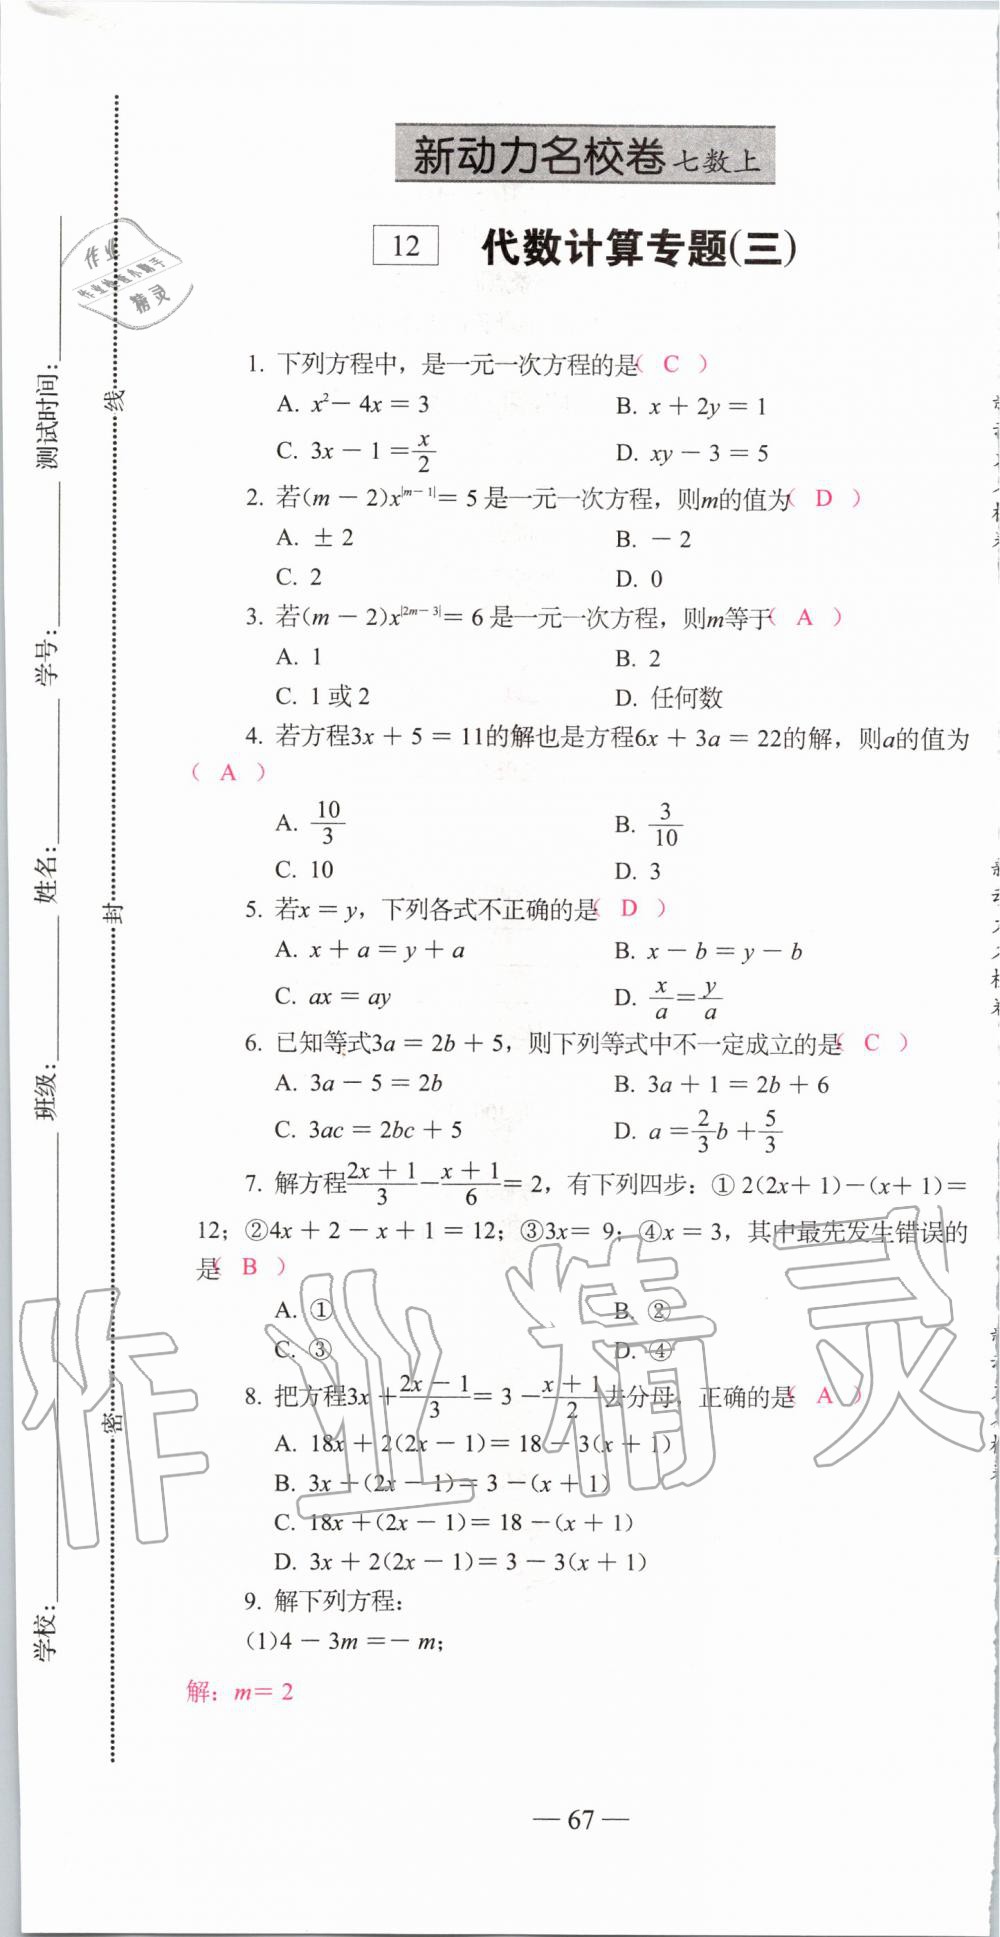 新动力名校卷 七数上
12 代数计算专题(三)
1. 下列方程中，是一元一次方程的是( C )
A. x²－4x＝3 B. x＋2y＝1
C. 3x－1＝x/2 D. xy－3＝5
2. 若(m－2)x^|m－1|＝5 是一元一次方程，则m的值为( D )
A. ±2 B. －2
C. 2 D. 0
3. 若(m－2)x^|2m－3|＝6 是一元一次方程，则m等于( A )
A. 1 B. 2
C. 1 或 2 D. 任何数
4. 若方程3x＋5＝11的解也是方程6x＋3a＝22的解，则a的值为
( A )
A. 10/3 B. 3/10
C. 10 D. 3
5. 若x＝y，下列各式不正确的是( D )
A. x＋a＝y＋a B. x－b＝y－b
C. ax＝ay D. x/a＝y/a
6. 已知等式3a＝2b＋5，则下列等式中不一定成立的是( C )
A. 3a－5＝2b B. 3a＋1＝2b＋6
C. 3ac＝2bc＋5 D. a＝2/3b＋5/3
7. 解方程(2x＋1)/3－(x＋1)/6＝2，有下列四步：① 2(2x＋1)－(x＋1)＝
12；②4x＋2－x＋1＝12；③3x＝9；④x＝3，其中最先发生错误的
是( B )
A. ① B. ②
C. ③ D. ④
8. 把方程3x＋(2x－1)/3＝3－(x＋1)/2去分母，正确的是( A )
A. 18x＋2(2x－1)＝18－3(x＋1)
B. 3x＋(2x－1)＝3－(x＋1)
C. 18x＋(2x－1)＝18－(x＋1)
D. 3x＋2(2x－1)＝3－3(x＋1)
9. 解下列方程：
(1)4－3m＝－m；
解：m＝2
— 67 —
学校： 班级： 姓名： 学号： 测试时间：
密 封 线
作业
作业检查小助手
精灵
作业精灵